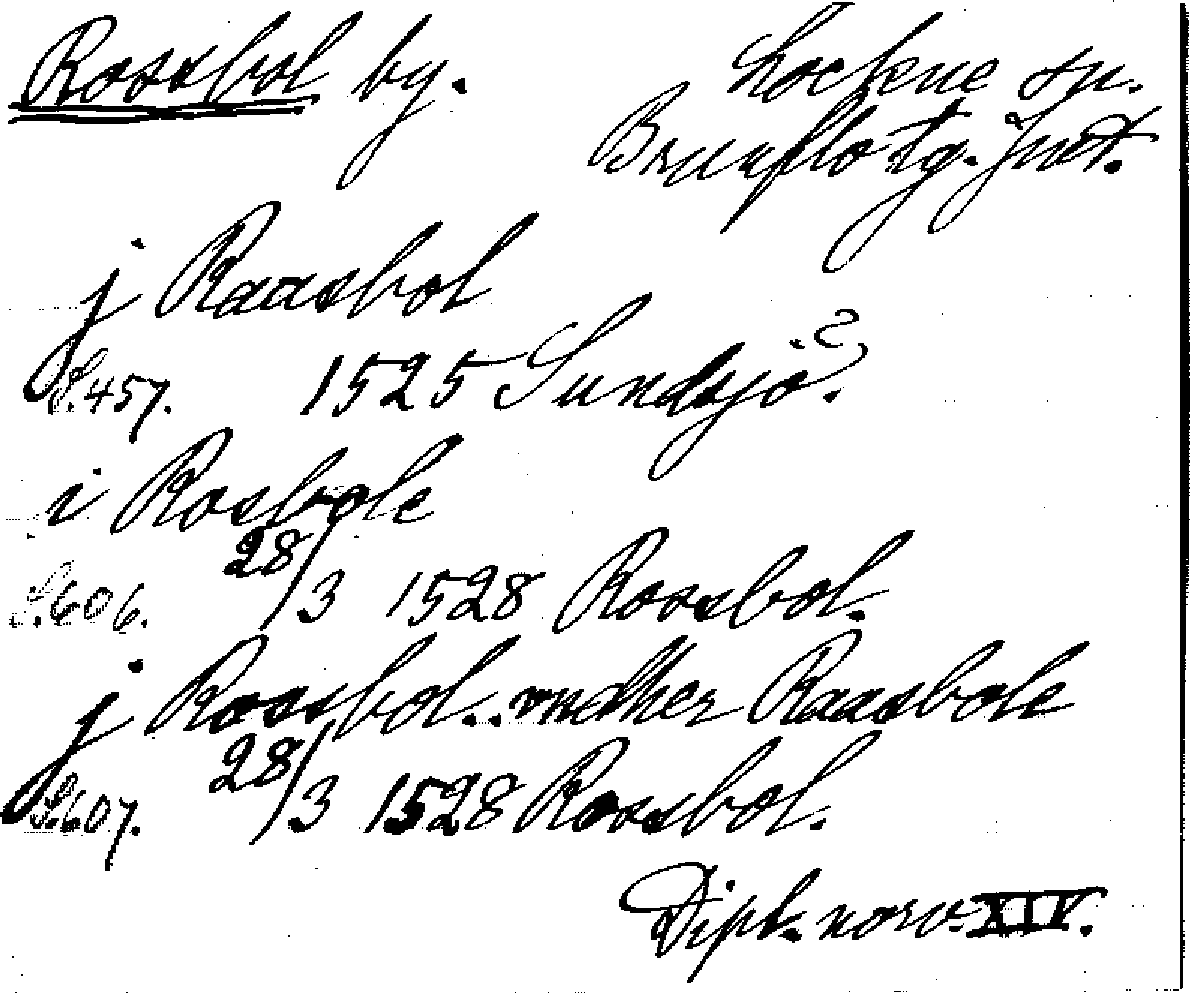 Rossbol by.
Lockne sn.
Brunflo tg. Jmt.
j Raasbol
S. 457. 1525 Sundsjö?.
i Rosbole
S. 606. 28/3 1528 Rossbol.
j Rossbol.. vndher Raasbole
S. 607. 28/3 1528 Rossbol.
Dipl. norv. XIV.